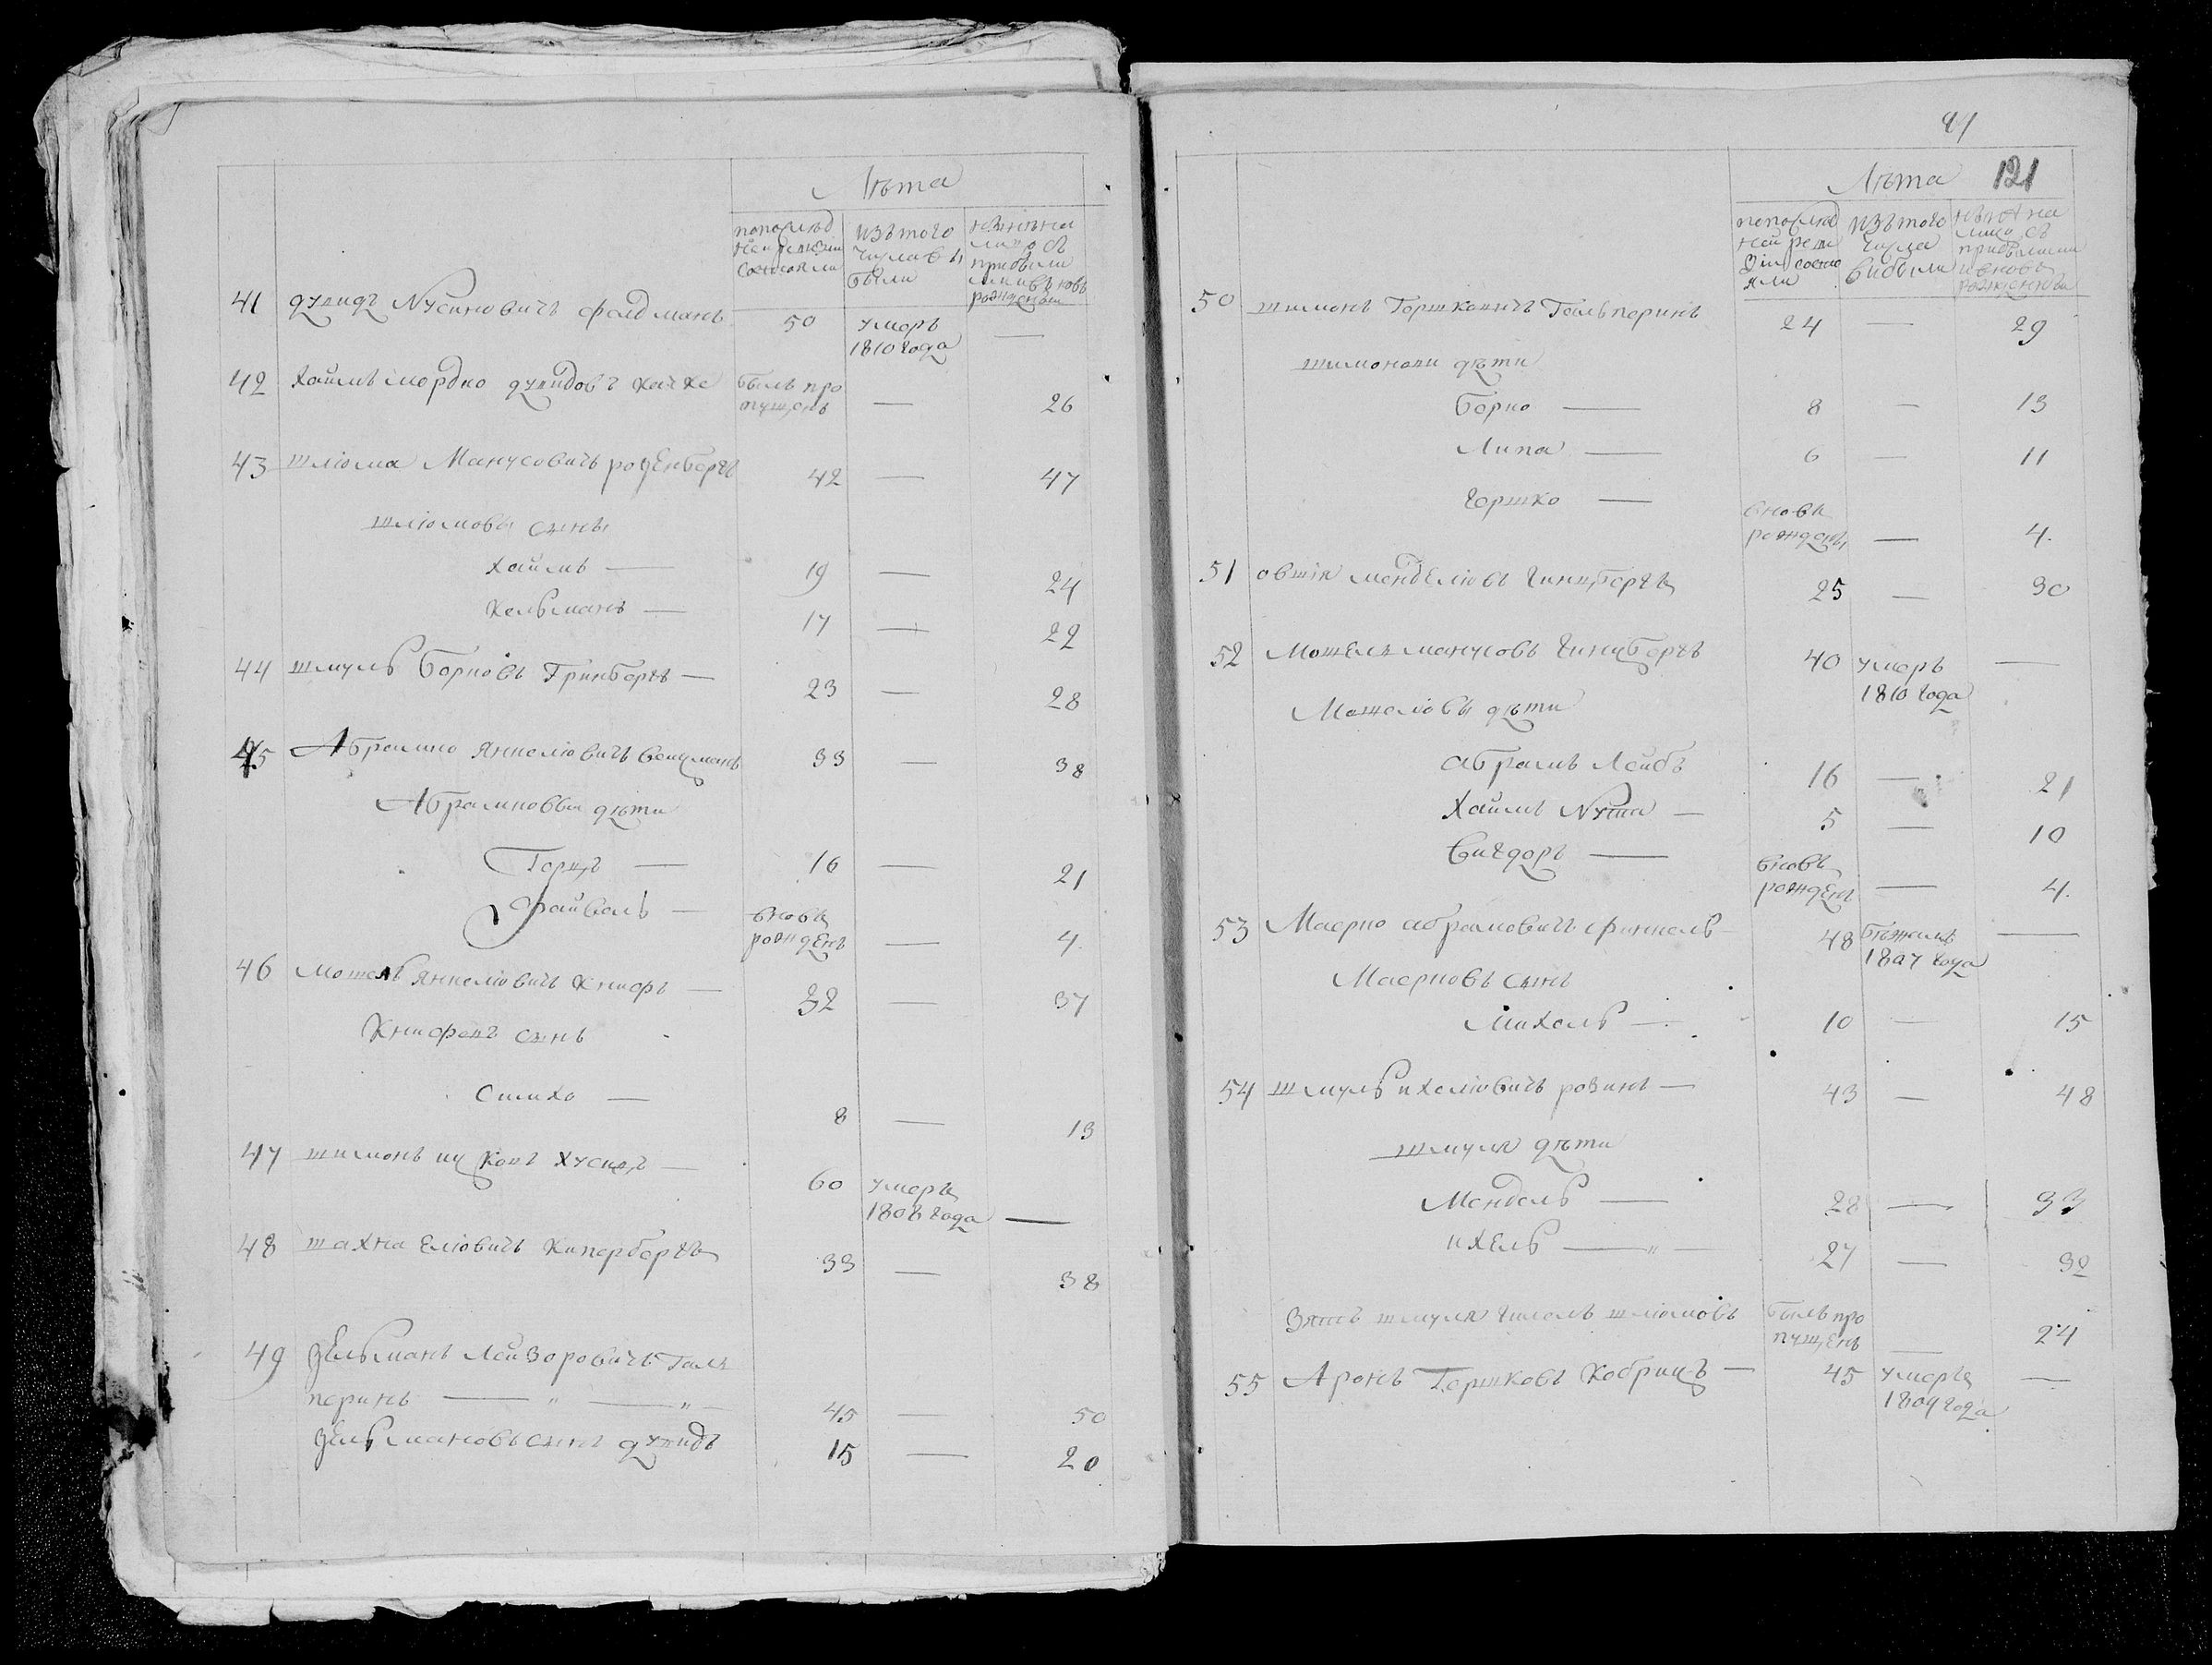 Лѣта
попослѣд
ней ревизіи
состояли
изъ того
числа вы
были
нынѣ на
лицо съ
прибыли
ми и вновь
рожденны
41 Дувидъ Nусиновичъ фелдманъ 50 умеръ —
1810 года
42 Хаимъ мордко дувидовъ былъ про
пущенъ — 26
43 шлiома Манусовичъ розЕнбергъ 42 — 47
шлiомовы сыны
Хаимъ — 19 — 24
Кельманъ — 17 — 22
44 шмуль Берковъ Гринбергъ — 23 — 28
45 Абрамко Янкелiовичъ вецманъ 33 — 38
Абрамковы дѣти
Герцъ — 16 — 21
Файвель — вновь
рожденъ — 4
46 Мошель Янкелiовичъ Книфъ — 32 — 37
Книфовъ сынъ
Симха — 8 — 13
47 шимонъ ицковъ Хусидъ — 60 умеръ
1808 года —
48 шахна Елiовичъ Кипербергъ 33 — 38
49 Зельманъ Лейзоровичъ Гал
перинъ — " — " — 45 — 50
Зельмановъ сынъ дувидъ 15 — 20
41
Лѣта 121
попослѣд
ней реви
зіи состо
яли
изъ того
числа
выбыли
нынѣ на
лицо съ
прибылыми
и вновь
рожденны
50 шимонъ Гершковичъ Гальперинъ 24 — 29
шимоновы дѣти
Берко — 8 — 13
Липа — 6 — 11
Гершко — вновь
рожденъ — 4.
51 овшiя мендЕлiовъ Гинцбергъ 25 — 30
52 Мошель манусовъ Гинцбергъ 40 умеръ —
1810 года
Мошелiовы дѣти
абрамъ Лейбъ 16 — 21
Хаимъ Nута — 5 — 10
Вигдоръ — вновь
рожденъ — 4.
53 Маерко абрамовичъ финкель — 48 бѣжалъ —
1807 года
Маерковъ сынъ
Михель — 10 — 15
54 шмуль ихелiовичъ розинъ — 43 — 48
шмуля дѣти
Мендель — 28 — 33
ихЕль — " — 27 — 32
Зять шмуля Гилель шлiомовъ былъ про
пущЕнъ — 24
55 Аронъ Гершковъ Кобрицъ — 45 умеръ —
1809 года